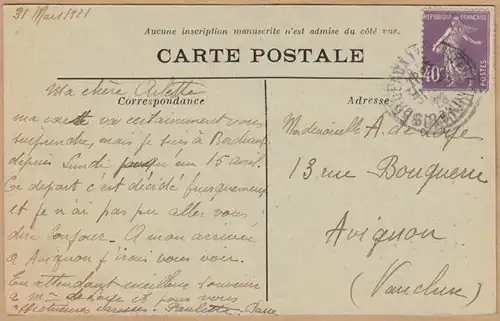 31 Mars 1921
Aucune inscription manuscrite n'est admise du côté vue.
CARTE POSTALE
RÉPUBLIQUE FRANÇAISE
40c
POSTES
Ma chère Arlette
Correspondance
Adresse
ma carte va certainement vous
surprendre, mais je suis à Bordeaux
depuis Lundi jusqu'au 15 avril.
Ce départ c'est décidé brusquement
et je n'ai pas pu aller vous
dire bonjour. A mon arrivée
à Avignon j'irai vous voir.
En attendant meilleur souvenir
à Mme et pour vous
affectueuses caresses. Paulette
Mademoiselle A. de
13 rue Bouquerie
Avignon
(Vaucluse)